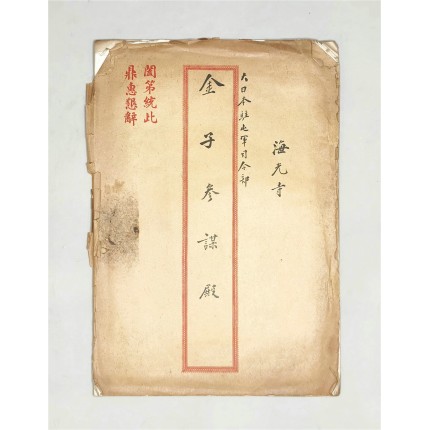 海光寺
大日本驻屯軍司令部
金子参謀殿
闔第統此
鼎惠懇辭